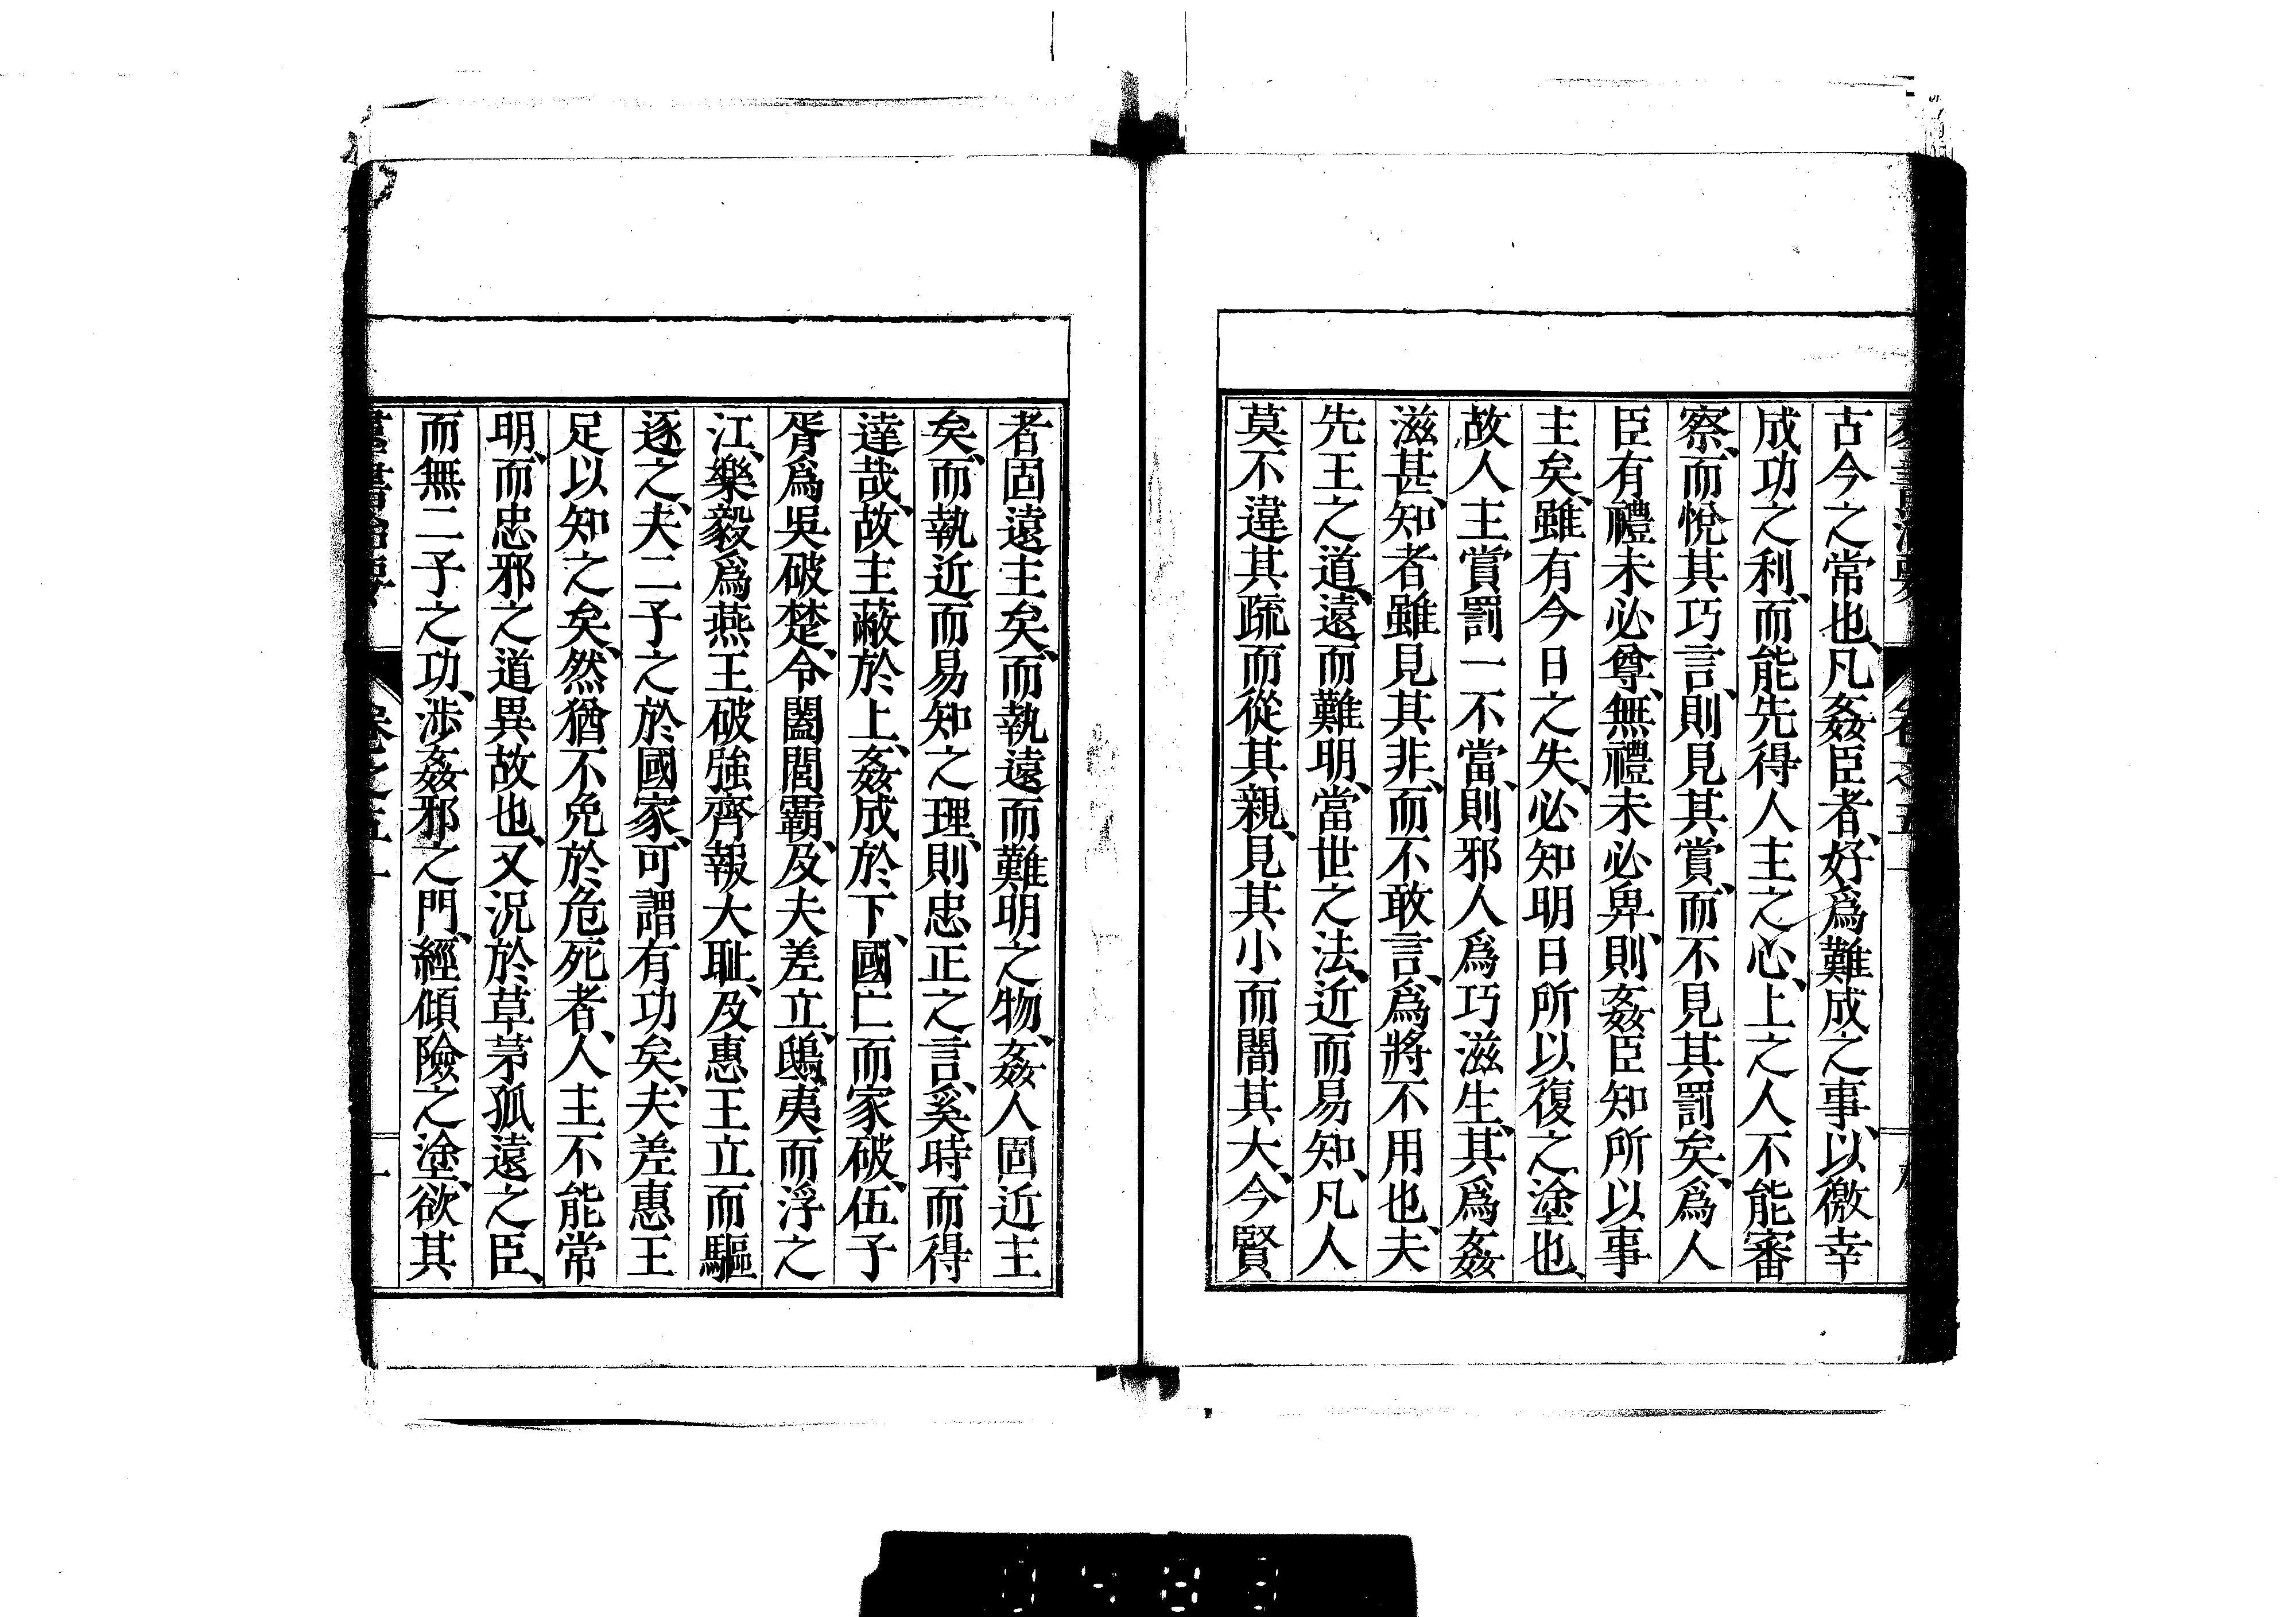 古今之常也、凡姦臣者、好爲難成之事、以徼幸
成功之利、而能先得人主之心、上之人不能審
察、而悅其巧言、則見其賞、而不見其罰矣、爲人
臣有禮未必尊、無禮未必卑、則姦臣知所以事
主矣、雖有今日之失、必知明日所以復之塗也、
故人主賞罰一不當、則邪人爲巧滋生、其爲姦
滋甚、知者雖見其非、而不敢言、爲將不用也、夫
先王之道、遠而難明、當世之法、近而易知、凡人
莫不違其疏而從其親、見其小而闇其大、今賢
者固遠主矣、而執遠而難明之物、姦人固近主
矣、而執近而易知之理、則忠正之言、奚時而得
達哉、故主蔽於上、姦成於下、國亡而家破、伍子
胥爲吳破楚、令闔閭霸、及夫差立、鴟夷而浮之
江、樂毅爲燕王破強齊、報大耻、及惠王立而驅
逐之、夫二子之於國家、可謂有功矣、夫差惠王
足以知之矣、然猶不免於危死者、人主不能常
明、而忠邪之道異故也、又況於草茅孤遠之臣、
而無二子之功、涉姦邪之門、經傾險之塗、欲其